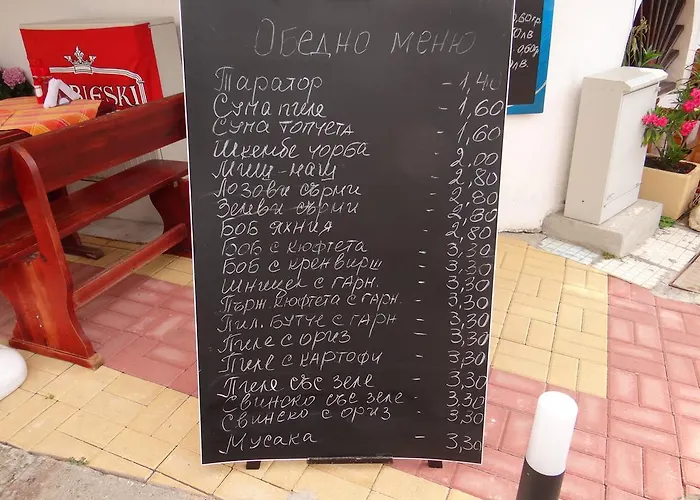 Обедно меню
Таратор - 1,40
Супа пиле - 1,60
Супа топчета - 1,60
Шкембе чорба - 2.00
Миш-маш - 2,80
Лозови сърми - 2,80
Зелеви сърми - 2,80
Боб яхния - 2,80
Боб с кюфтета - 3,30
Боб с кренвирш - 3,30
Шницел с гарн. - 3,30
Пърж. кюфтета с гарн. - 3,30
Пил. бутче с гарн - 3,30
Пиле с ориз - 3,30
Пиле с картофи - 3,30
Пиле със зеле - 3,30
Свинско със зеле - 3,30
Свинско с ориз - 3,30
Мусака - 3,30